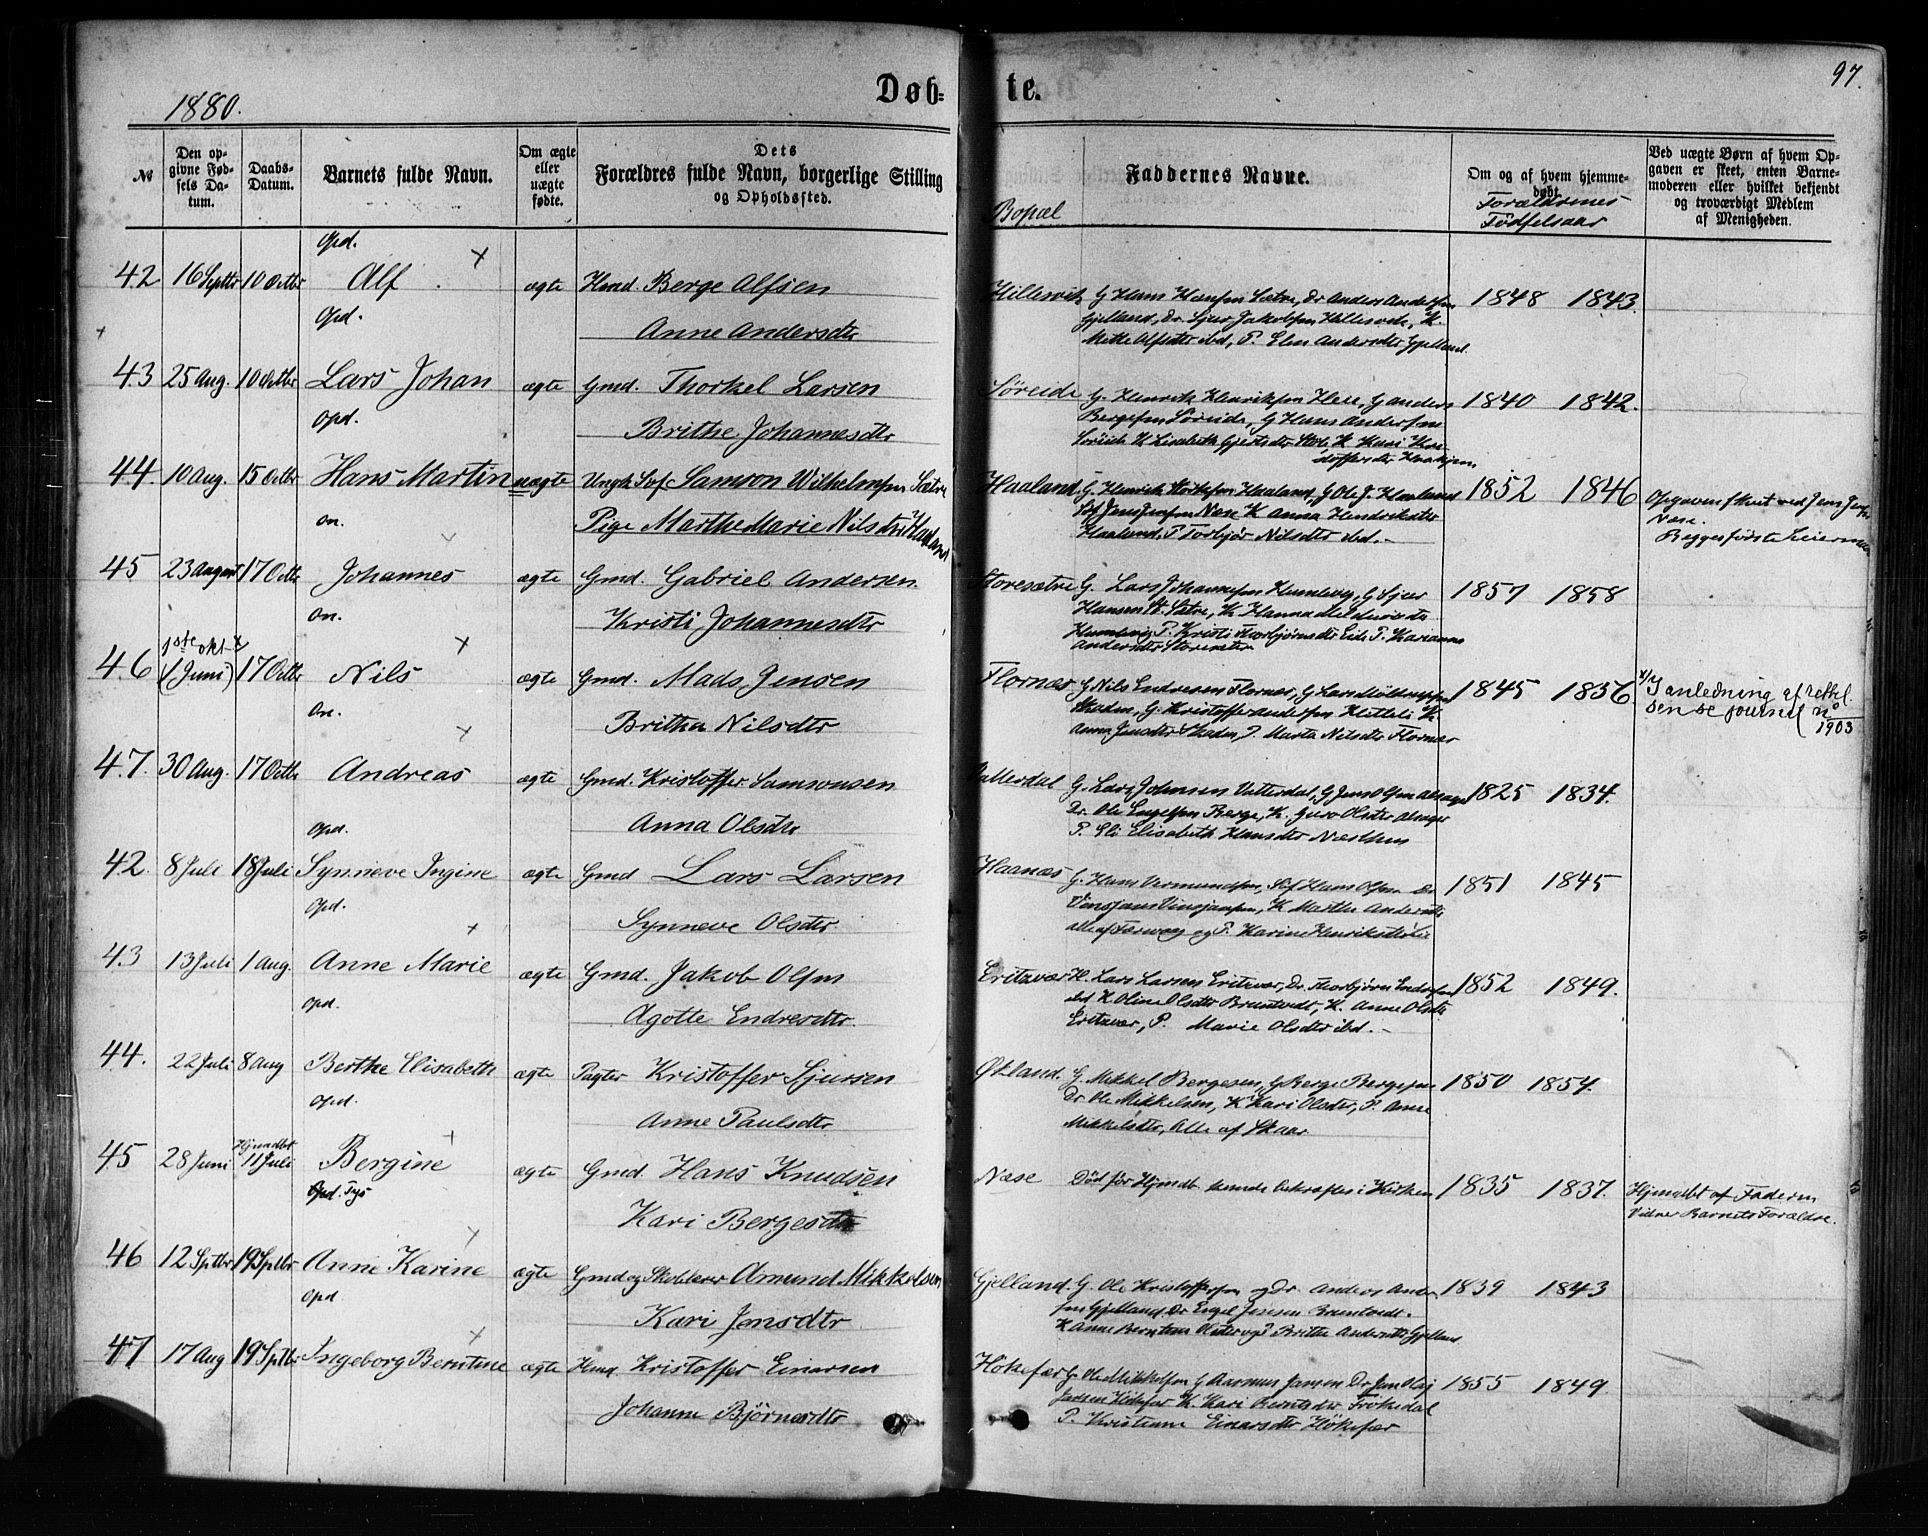 1880.
Døb- te.
97.
№
Den opgivne Fødsels Datum.
Daabs-Datum.
Barnets fulde Navn.
Om ægte eller uægte fødte.
Dets Forældres fulde Navn, borgerlige Stilling og Opholdssted.
Bopæl
Faddernes Navne.
Om og af hvem hjemmedøbt.
Forældrenes Födselsaar
Ved uægte Børn af hvem Opgaven er skeet, enten Barnemoderen eller hvilket bekjendt og troværdigt Medlem af Menigheden.
Opd.
42 16 Septbr 10 Octbr Alf ægte Hmd. Berge Alfsen
Hillesvik G Hans Hansen Sætre, Dr Anders Andersen 1848 1843.
Opd.
Gjelland, Dr. Sjur Jakobsen Hillesvik, K.
Anne Andersdtr
Mette Alfsdtr ibd, P. Elen Andersdtr Gjelland
43 25 Aug. 10 Octbr Lars Johan ægte Gmd. Thorkel Larsen
Søreide G. Henrik Henriksen G Anders 1840 1842.
Opd.
Bergesen Søreide, G Hans Andersen
Brithe Johannesdtr
44. 10 Aug. 15 Octbr Hans Martin uægte Ungk Søf Samson Wilhelmsen Sætre
Haaland G. Henrik Haaland, G Ole J. Haaland 1852 1846
Opgaven skeet ved Jens
Næse.
Søf Jens Jensen Næse K Anna Hendriksdtr
on.
Pige Marthe Marie Nilsdtr Haaland
Haaland, P Torbjør Nilsdtr ibd.
Begges første Leiermaal
45 23 August 17 Octbr Johannes ægte Gmd. Gabriel Andersen
Storesætre G. Lars Johannesen Humlevig, G Sjur 1857 1858
on.
Hansen St. Sætre, K Hanna
Kristi Johannesdtr
Humlevig P. Kristi Thorbjørnsdtr Eide P. Karianna
Andersdtr Storesætre
1ste okt
46 (1 Juni) 17 Octbr Nils ægte Gmd. Mads Jensen
Flornæs G Nils Endresen Flornæs, G Lars 1845 1856.
I anledning af rettelsen se journal no 1903
on.
Skaden, G. Kristoffer Andersen K.
Britha Nilsdtr
Anna Jensdtr Skaden, P. Marta Nilsdtr Flornæs
47. 30 Aug. 17 Octb Andreas ægte Gmd. Kristoffer Samsonsen
Vatterdal G. Lars Johnsen Vatterdal, G Jens Olsen 1825 1834.
Dr. Ole Engelsen Berge, K. Olsdtr
Opd.
Anna Olsdtr
P. Eli Elisabeth Hansdtr
42. 8 Juli 18 Juli Synneve Ingine ægte Gmd Lars Larsen
Haanæs G. Hans Vermundsen, Søf Hans Olsen 1851 1845
Opd.
K Marthe Andersdtr
Synneve Olsdtr
alle af og P. Karine Henriksdtr
43 13 Juli 1 Aug. Anne Marie ægte Gmd. Jakob Olsen
Eritsvær H. Lars Larsen Eritsvær, Dr. Thorbjørn Endresen 1852 1849.
Opd.
ibd K Oline Olsdtr Brantvedt, K. Anne Olsdtr
Agotte Endresdtr.
Eritsvær, P. Marie Olsdtr ibd.
44. 22 Juli 8 Aug Berthe Elisabeth ægte Pagter Kristoffer Sjursen
Økland. G. Mikkel Bergesen, G Berge Bergesen 1850 1854.
Opd.
Dr. Ole Mikkelsen, K Kari Olsdtr, P. Anne
Anne Paulsdtr
Mikkelsdtr, Alle af Skaar
45 28 Juni Hjmdbt 11 Juli Bergine ægte Gmd. Hans Knudsen
Næse Død før Hjmdb. kunde bekræftes i Kirken 1835 1837.
Hjmdbt af Faderen
Vidner Barnets Forældre.
Opd.
Kari Bergesdtr
46 12 Sptbr 19 Sptbr Anne Karine ægte Gmd og Skoblerer Amund Mikkelsen
Gjelland. G. Ole Kristoffersen og Dr. Anders Andersen 1839 1843
Opd
Gjelland. Dr Engel Jensen Brantvedt.
Kari Jensdtr
K Anne Berntina Olsdtr og P Britte Andersdtr Gjelland
47 17 Aug 19 Sptbr Ingeborg Berntine ægte Hmd. Kristoffer Einarsen
Høkefær G. Ole Mikkelsen G Rasmus Jansen Dr Jan Olaj 1855 1849.
Jansen Høkefær K. Kari Berntsdtr Frøkedal
Johanne Björnardtr
P. Kristianne Einarsdtr Høkefær